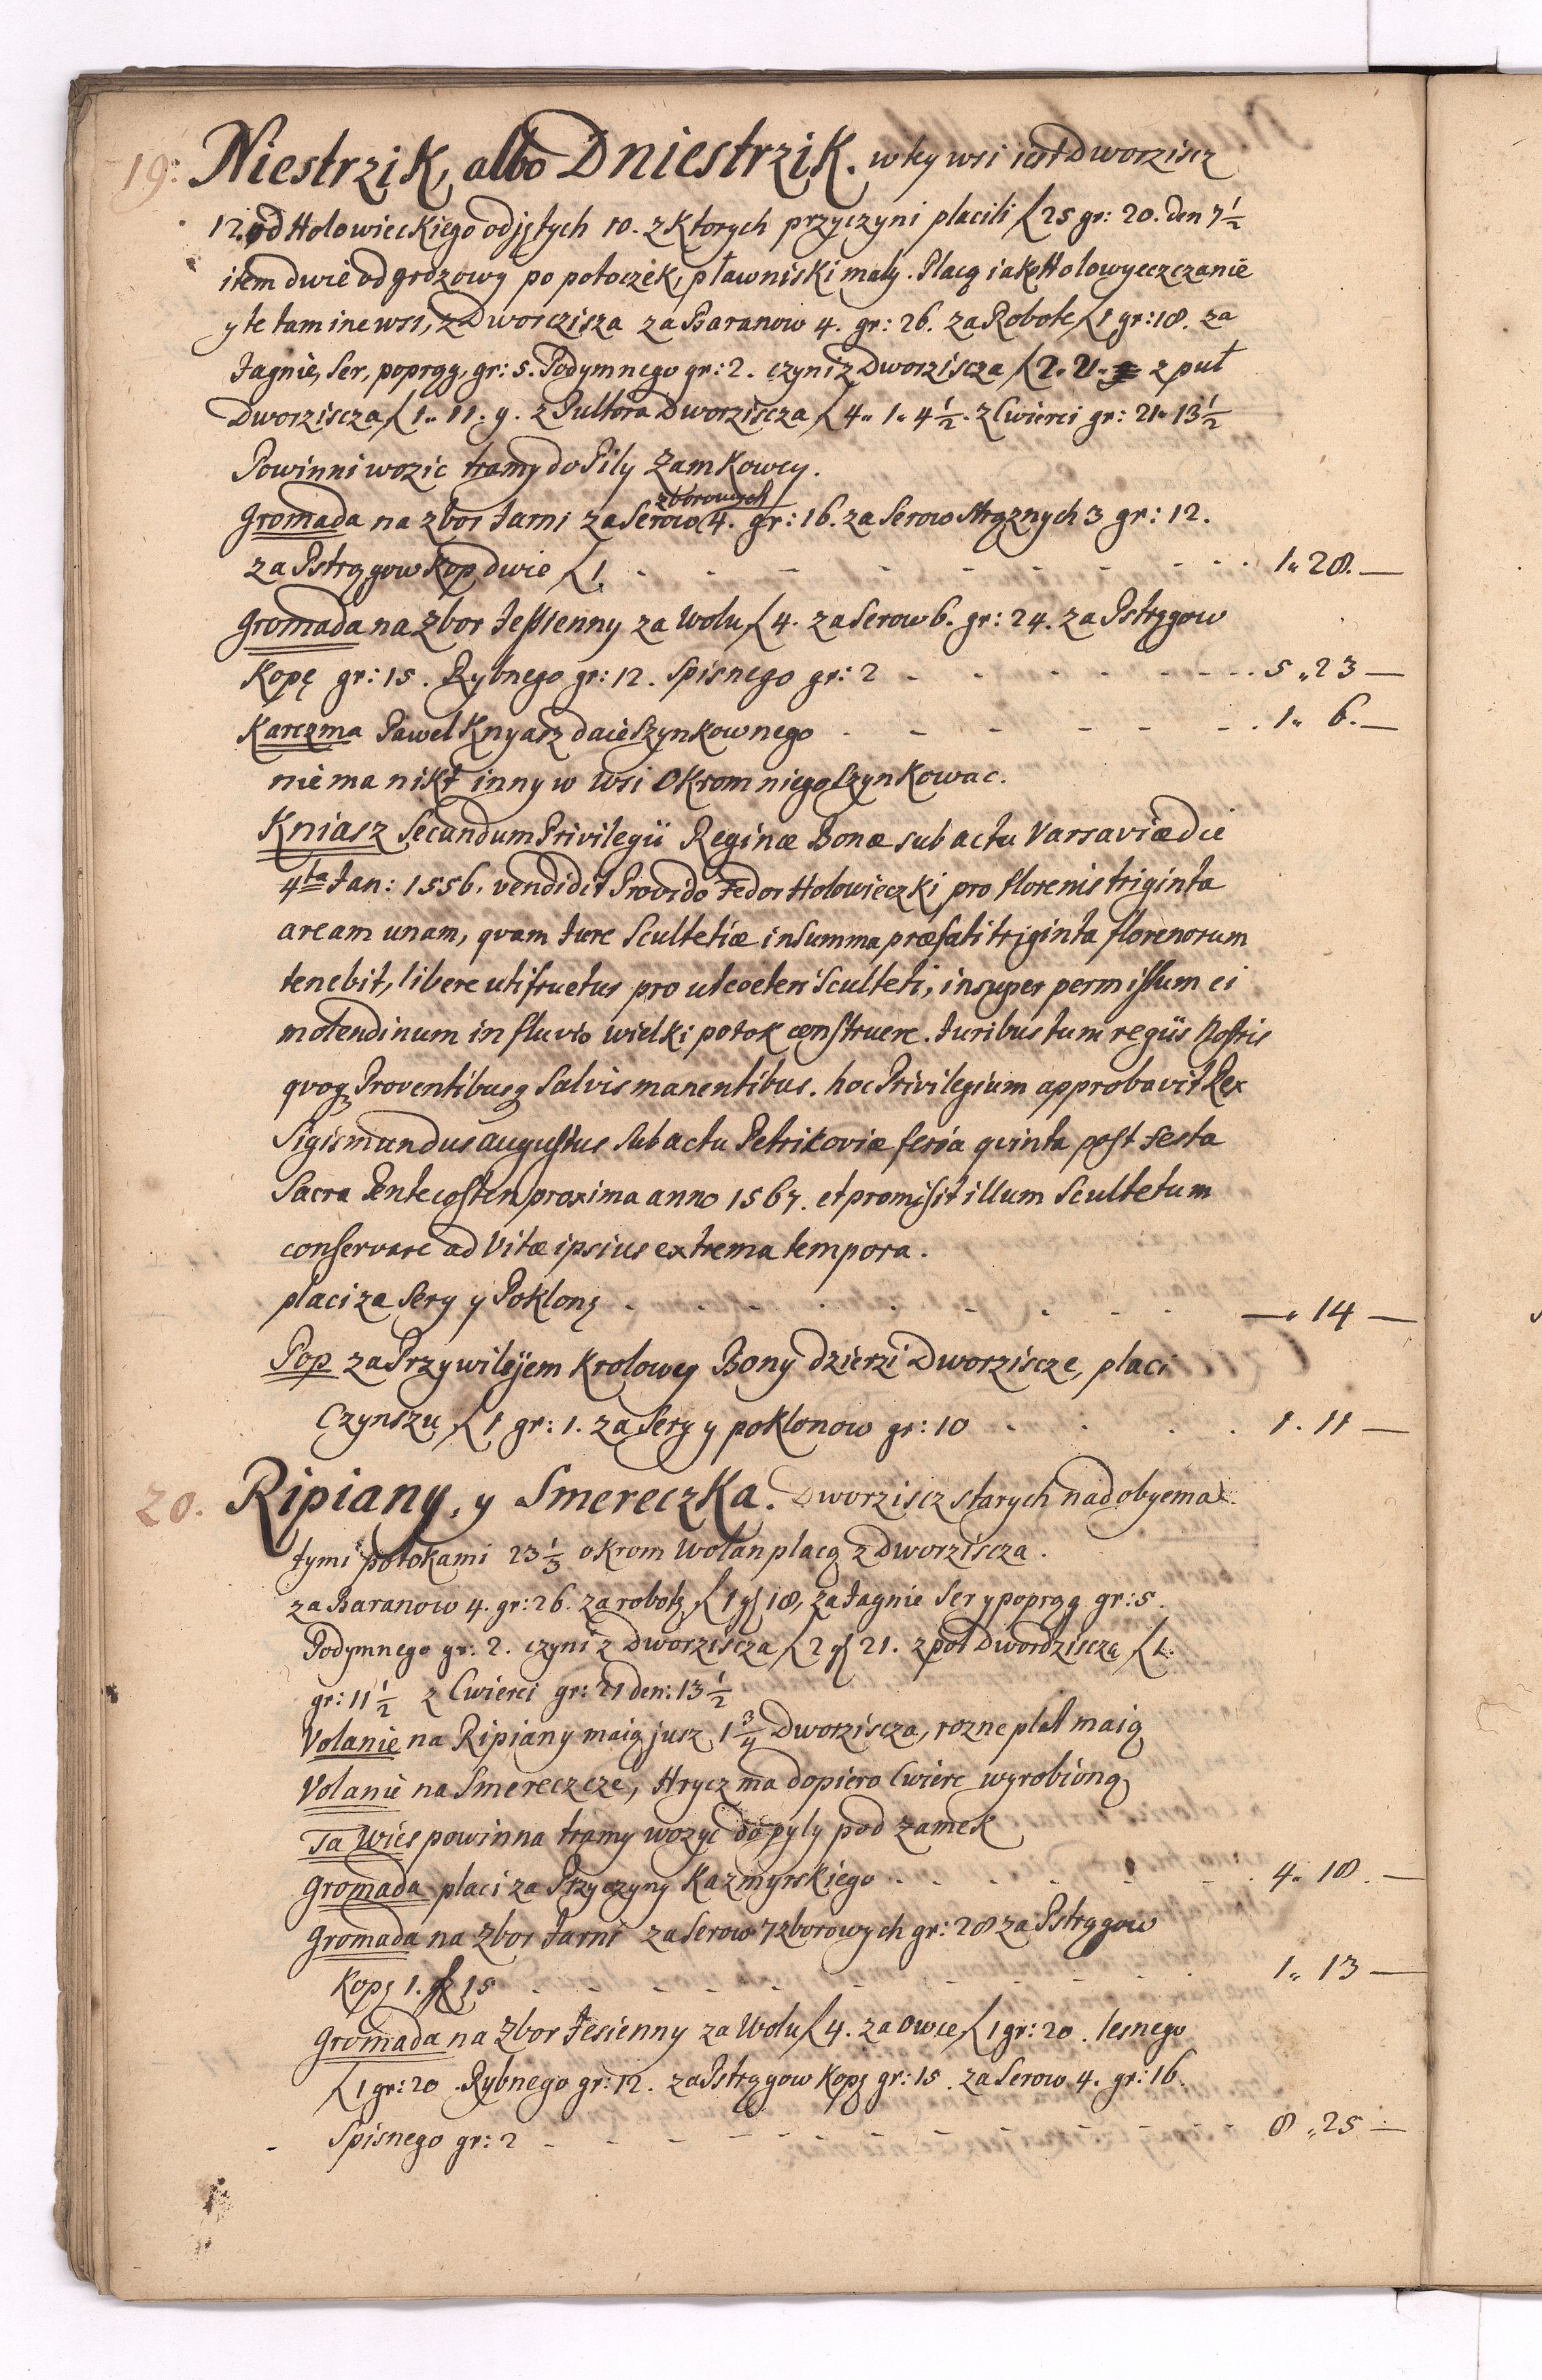 19. Niestrzik, albo Dniestrzik. w tey wsi iest Dworziscz
12. od Holowieckiego odjętych 10. z Ktorych przyczyni placili ƒ 25 gr: 20. den 7 1/2
item dwie od grozowy po potoczek, pławniski maly. Placą iako Holowyeczczanie
y te tam ine wsi, z Dworczisza za Baranow 4. gr: 26. za Robote ƒ 1 gr: 18. za
Jagnie, Ser, poprąg, gr: 5. Podymnego gr: 2. czyni z Dworziscza ƒ 2. 21. z puł
Dworziscza ƒ 1„ 11. 9. z Pultora Dworziscza ƒ 4„ 1„ 4 1/2. z Cwierci gr: 21„ 13 1/2
Powinni wozic tramy do Pily Zamkowey.
zborowych
Gromada na zbor Jarni za Serow 4. gr: 16. za Serow Strąznych 3 gr: 12.
za Pstrągow Kop dwie ƒ 1. 1„ 28. —
Gromada na Zbor Jessienny za Wolu ƒ 4. za Serow 6. gr: 24. za Pstrągow
Kopę gr: 15. Rybnego gr: 12. Spisnego gr: 2 5 „ 23 —
Karczma Pawel Knyasz daie Szynkownego 1„ 6. —
nie ma nikt inny w Wsi Okrom niego Szynkowac.
Kniasz Secundum Privilegii Reginæ Bonæ sub actu Varsaviæ die
4ta Jan: 1556. vendidit Provido Fedor Holowieczki pro florenis triginta
aream unam, qvam Jure Scultetiæ in Summa præfati triginta florenorum
tenebit, libere utifructus pro ut cœteri Sculteti, insuper permissum ei
molendinum in fluvio wielki potok construere. Juribus tum regiis Nostris
qvoq Proventibusq Salvis manentibus. hoc Privilegium approbavit Rex
Sigismundus Augustus Sub actu Petrikoviæ feria qvinta post festa
Sacra Pentecosten proxima anno 1567. et promisit illum Scultetum
conservare ad Vitæ ipsius extrema tempora.
placi za Sery y Poklonę —„ 14 —
Pop za Przywilejem Krolowey Bony dzierzi Dworziscze, placi
Czynszu ƒ 1 gr: 1. za Sery y poklonow gr: 10 1. 11 —
20. Ripiany, y Smereczka. Dworziscz starych nad obyema
tymi potokami 23 1/3 okrom Wolan placą z Dworziscza.
za Baranow 4. gr: 26. za robotę ƒ 1 gr 18, za Jagnie Ser y poprąg gr: 5.
Podymnego gr: 2. czyni z Dworziscza ƒ 2 gr 21. z pol Dwordziscza ƒ 1.
gr: 11 1/2 z Cwierci gr: 21 den: 13 1/2
Volanie na Ripiany maią jusz 1 3/4 Dworziscza, rozne plat maią
Volanie na Smereczcze, Hrycz ma dopiero Cwierc wyrobioną
Ta Wies powinna tramy wozyc do pyly pod zamek
Gromada placi za Przyczyny Kazmyrskiego 4„ 18. —
Gromada na Zbor Jarni za Serow 7 zborowych gr: 28 za Pstrągow
Kopę 1. gr 15 1„ 13 —
Gromada na Zbor Jesienny za Wolu ƒ 4. za Owce ƒ 1 gr: 20. lesnego
ƒ 1 gr: 20. Rybnego gr: 12. za Pstrągow Kopę gr: 15. za Serow 4. gr: 16.
Spisnego gr: 2 8 „ 25 —